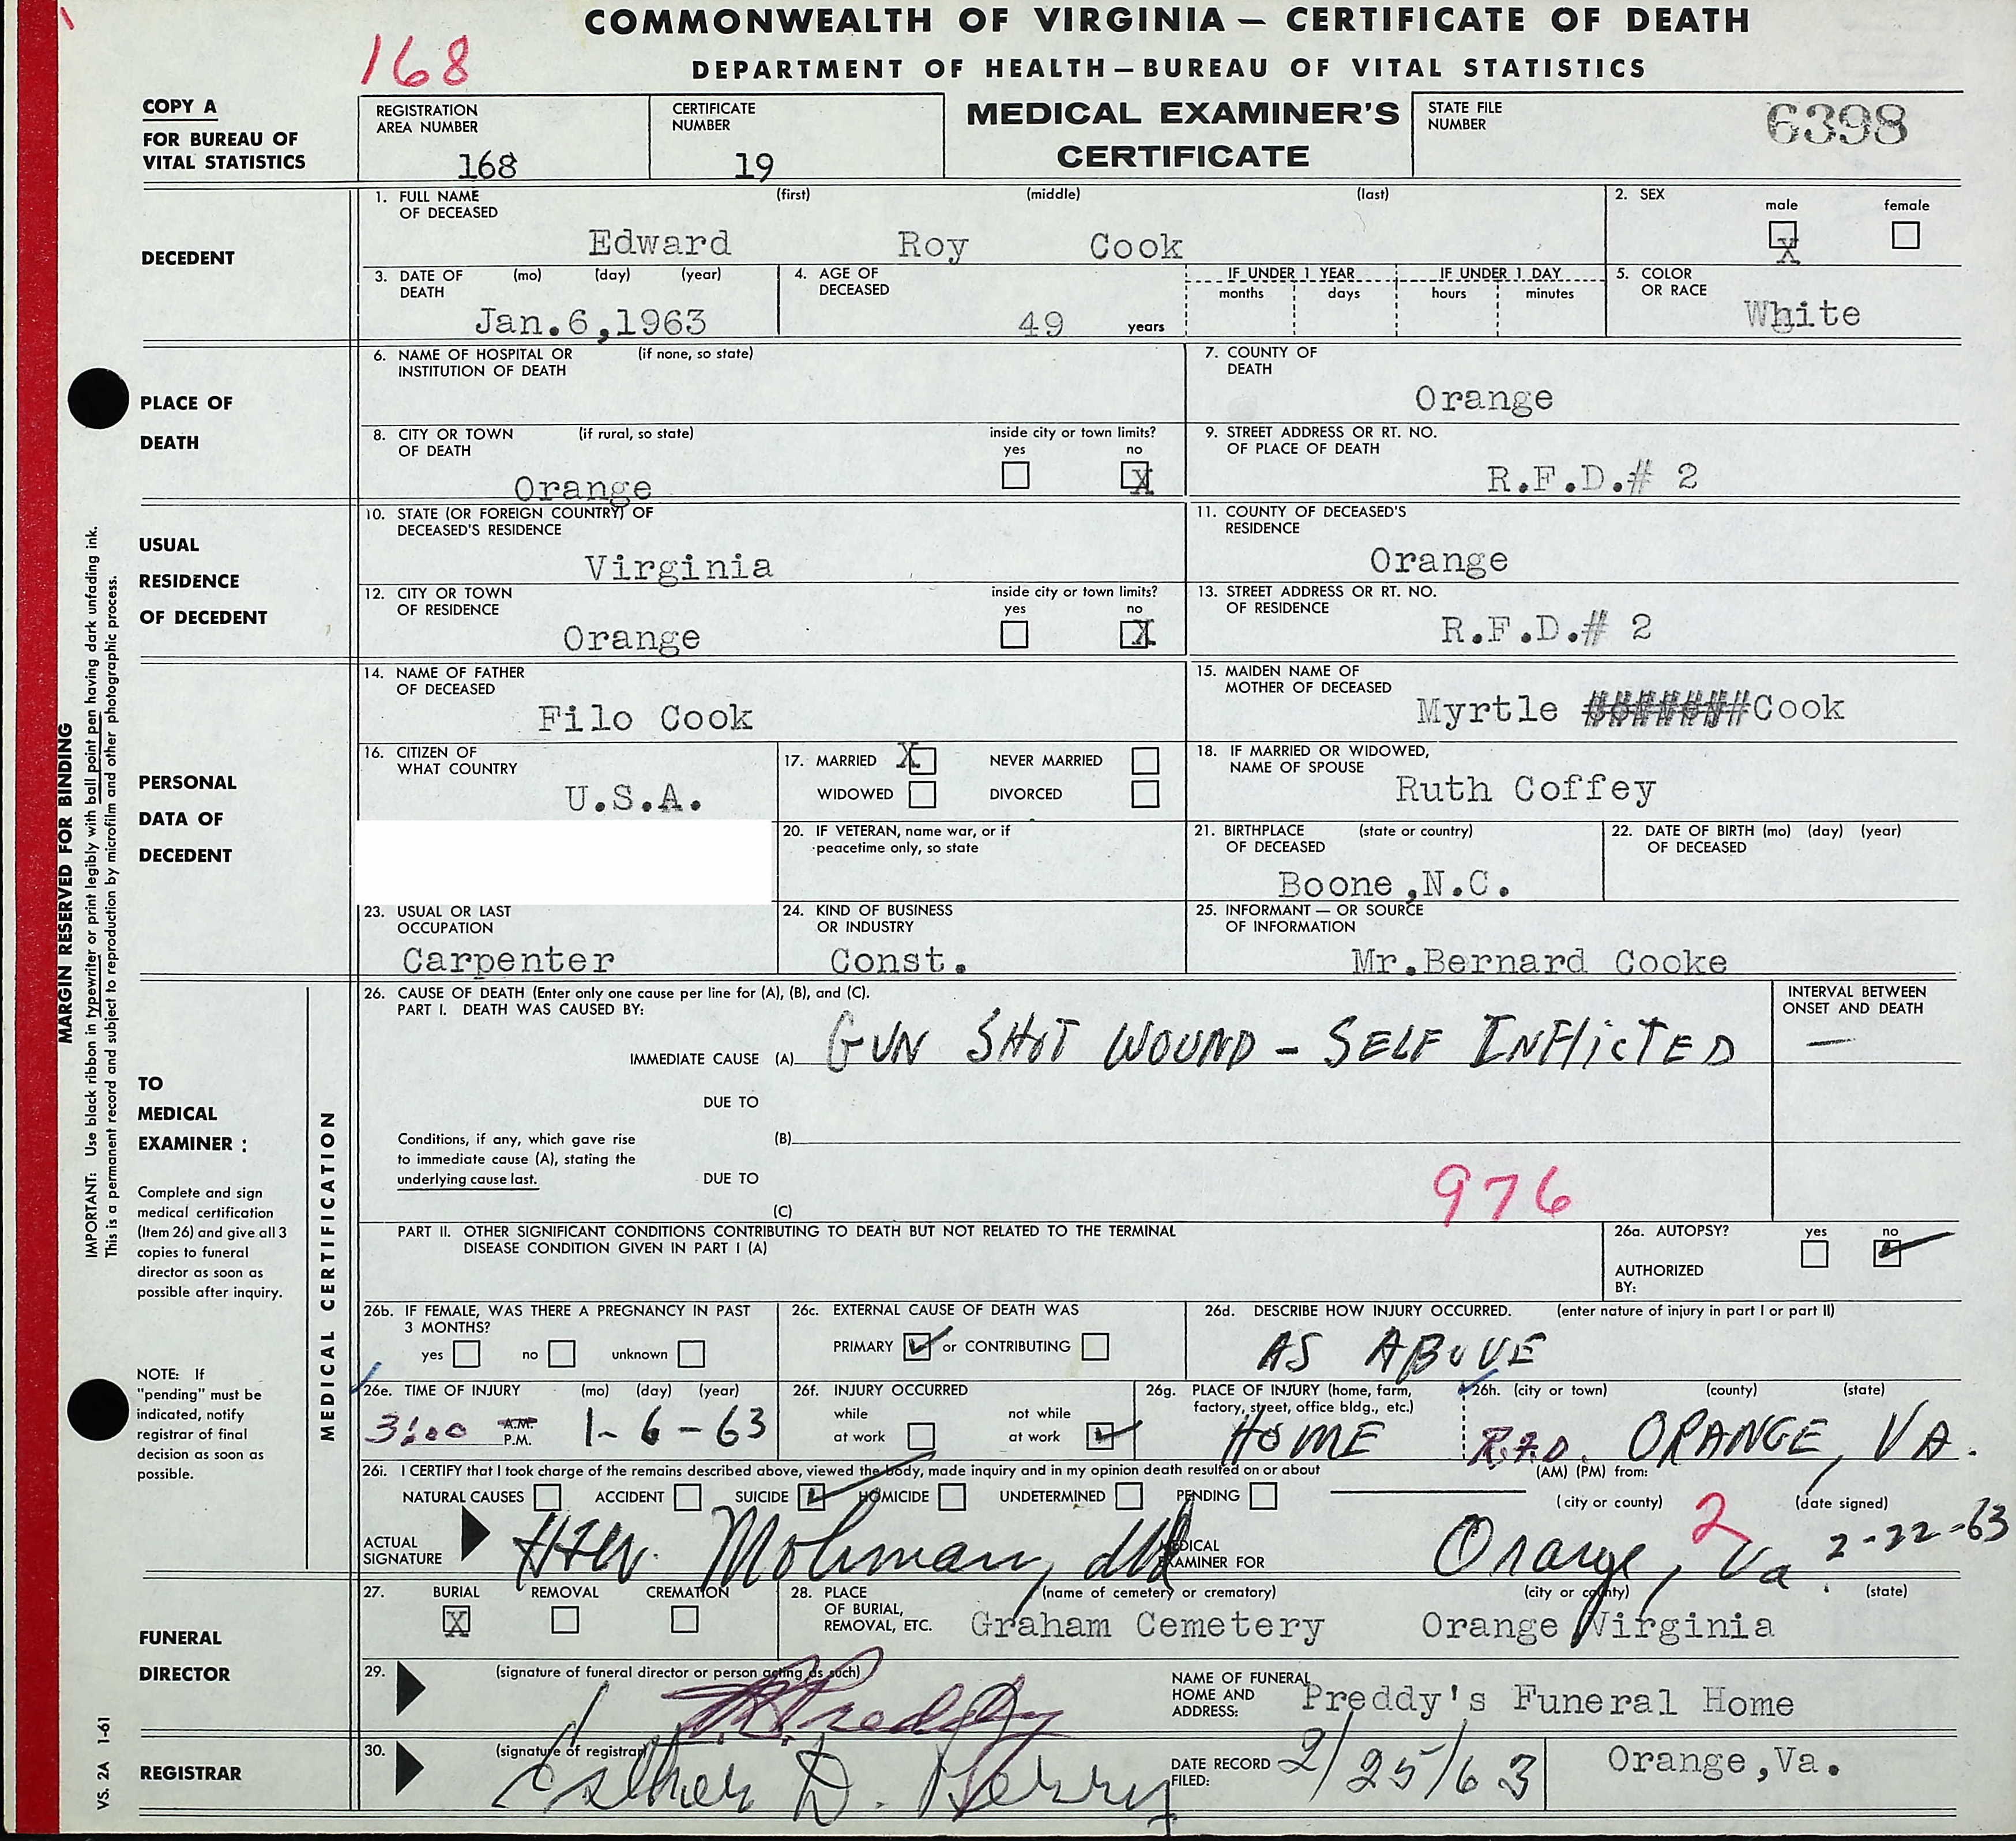 COMMONWEALTH OF VIRGINIA — CERTIFICATE OF DEATH
168
DEPARTMENT OF HEALTH — BUREAU OF VITAL STATISTICS
COPY A
FOR BUREAU OF
VITAL STATISTICS
REGISTRATION
AREA NUMBER
168
CERTIFICATE
NUMBER
19
MEDICAL EXAMINER'S
CERTIFICATE
STATE FILE
NUMBER
6398
DECEDENT
1. FULL NAME (first) (middle) (last)
OF DECEASED
Edward Roy Cook
2. SEX
male female
X
3. DATE OF (mo) (day) (year)
DEATH
Jan.6,1963
4. AGE OF
DECEASED
49 years
IF UNDER 1 YEAR IF UNDER 1 DAY
months days hours minutes
5. COLOR
OR RACE
White
PLACE OF
DEATH
6. NAME OF HOSPITAL OR (if none, so state)
INSTITUTION OF DEATH
7. COUNTY OF
DEATH
Orange
8. CITY OR TOWN (if rural, so state) inside city or town limits?
OF DEATH yes no
Orange X
9. STREET ADDRESS OR RT. NO.
OF PLACE OF DEATH
R.F.D.# 2
USUAL
RESIDENCE
OF DECEDENT
10. STATE (OR FOREIGN COUNTRY) OF
DECEASED'S RESIDENCE
Virginia
11. COUNTY OF DECEASED'S
RESIDENCE
Orange
12. CITY OR TOWN inside city or town limits?
OF RESIDENCE yes no
Orange X
13. STREET ADDRESS OR RT. NO.
OF RESIDENCE
R.F.D.# 2
PERSONAL
DATA OF
DECEDENT
14. NAME OF FATHER
OF DECEASED
Filo Cook
15. MAIDEN NAME OF
MOTHER OF DECEASED
Myrtle #######Cook
16. CITIZEN OF
WHAT COUNTRY
U.S.A.
17. MARRIED X NEVER MARRIED
WIDOWED DIVORCED
18. IF MARRIED OR WIDOWED,
NAME OF SPOUSE
Ruth Coffey
20. IF VETERAN, name war, or if
peacetime only, so state
21. BIRTHPLACE (state or country)
OF DECEASED
Boone,N.C.
22. DATE OF BIRTH (mo) (day) (year)
OF DECEASED
23. USUAL OR LAST
OCCUPATION
Carpenter
24. KIND OF BUSINESS
OR INDUSTRY
Const.
25. INFORMANT — OR SOURCE
OF INFORMATION
Mr.Bernard Cooke
MARGIN RESERVED FOR BINDING
IMPORTANT: Use black ribbon in typewriter or print legibly with ball point pen having dark unfading ink.
This is a permanent record and subject to reproduction by microfilm and other photographic process.
TO
MEDICAL
EXAMINER :
Complete and sign
medical certification
(Item 26) and give all 3
copies to funeral
director as soon as
possible after inquiry.
NOTE: If
"pending" must be
indicated, notify
registrar of final
decision as soon as
possible.
MEDICAL CERTIFICATION
26. CAUSE OF DEATH (Enter only one cause per line for (A), (B), and (C).
PART I. DEATH WAS CAUSED BY:
INTERVAL BETWEEN
ONSET AND DEATH
IMMEDIATE CAUSE (A) GUN SHOT WOUND - SELF INFLICTED —
DUE TO
Conditions, if any, which gave rise (B)
to immediate cause (A), stating the
underlying cause last. DUE TO
976
(C)
PART II. OTHER SIGNIFICANT CONDITIONS CONTRIBUTING TO DEATH BUT NOT RELATED TO THE TERMINAL
DISEASE CONDITION GIVEN IN PART I (A)
26a. AUTOPSY? yes no
AUTHORIZED
BY:
26b. IF FEMALE, WAS THERE A PREGNANCY IN PAST
3 MONTHS?
yes no unknown
26c. EXTERNAL CAUSE OF DEATH WAS
PRIMARY or CONTRIBUTING
26d. DESCRIBE HOW INJURY OCCURRED. (enter nature of injury in part I or part II)
AS ABOVE
26e. TIME OF INJURY (mo) (day) (year)
3:00 A.M. P.M. 1-6-63
26f. INJURY OCCURRED
while not while
at work at work
26g. PLACE OF INJURY (home, farm,
factory, street, office bldg., etc.)
HOME
26h. (city or town) (county) (state)
R.F.D. ORANGE, VA.
26i. I CERTIFY that I took charge of the remains described above, viewed the body, made inquiry and in my opinion death resulted on or about (AM) (PM) from:
NATURAL CAUSES ACCIDENT SUICIDE HOMICIDE UNDETERMINED PENDING
(city or county) (date signed)
ACTUAL
SIGNATURE
MEDICAL
EXAMINER FOR
Orange, Va. 2 2-22-63
FUNERAL
DIRECTOR
27. BURIAL REMOVAL CREMATION
X
28. PLACE (name of cemetery or crematory) (city or county) (state)
OF BURIAL,
REMOVAL, ETC.
Graham Cemetery Orange Virginia
29. (signature of funeral director or person acting as such)
Preddy
NAME OF FUNERAL
HOME AND
ADDRESS:
Preddy's Funeral Home
REGISTRAR
30. (signature of registrar)
Esther D. Berry
DATE RECORD
FILED:
2/25/63
Orange,Va.
VS. 2A 1-61